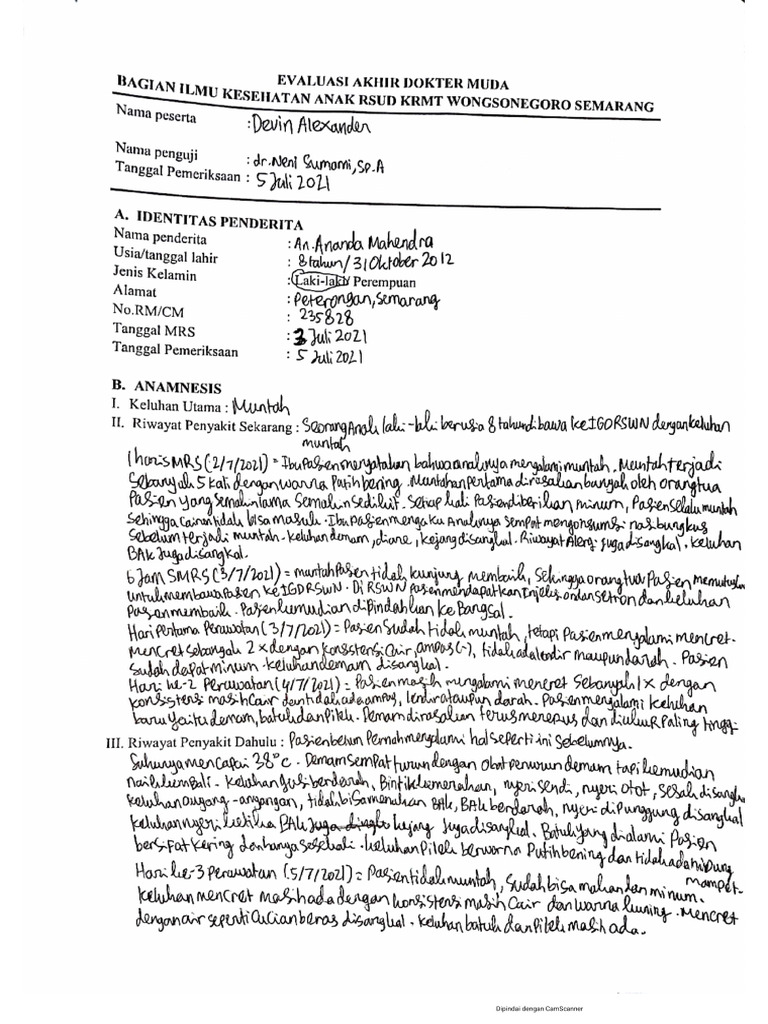 EVALUASI AKHIR DOKTER MUDA
BAGIAN ILMU KESEHATAN ANAK RSUD KRMT WONGSONEGORO SEMARANG
Nama peserta : Devin Alexander
Nama penguji : dr. Neni Sumarni, Sp.A
Tanggal Pemeriksaan : 5 Juli 2021
A. IDENTITAS PENDERITA
Nama penderita : An. Ananda Mahendra
Usia/tanggal lahir : 8 tahun / 31 Oktober 2012
Jenis Kelamin : Laki-laki/ Perempuan
Alamat : Peterongan, Semarang
No.RM/CM : 235828
Tanggal MRS : 3 Juli 2021
Tanggal Pemeriksaan : 5 Juli 2021
B. ANAMNESIS
I. Keluhan Utama : Muntah
II. Riwayat Penyakit Sekarang : Seorang Anak laki-laki berusia 8 tahun dibawa ke IGD RSWN dengan keluhan
muntah
1 hari SMRS (2/7/2021) = Ibu Pasien menyatakan bahwa anaknya mengalami muntah. Muntah terjadi
Sebanyak 5 kali dengan warna Putih bening. Muntahan pertama dirasakan banyak oleh orangtua
Pasien yang semakin lama semakin sedikit. Setiap kali Pasien diberikan minum, Pasien selalu muntah
Sehingga Cairan tidak bisa masuk. Ibu Pasien mengaku Anaknya sempat mengonsumsi nasi bungkus
Sebelum terjadi muntah. Keluhan demam, diare, kejang disangkal. Riwayat Alergi juga disangkal. Keluhan
BAK Juga disangkal.
6 Jam SMRS (3/7/2021) = muntah Pasien tidak kunjung membaik, Sehingga orangtua Pasien memutuskan
untuk membawa Pasien ke IGD RSWN. Di RSWN Pasien mendapatkan Injeksi ondansetron dan keluhan
Pasien membaik. Pasien kemudian dipindahkan ke Bangsal.
Hari Pertama Perawatan (3/7/2021) = Pasien sudah tidak muntah, tetapi Pasien mengalami mencret.
Mencret sebanyak 2x dengan konsistensi Cair, ampas (-), tidak ada lendir maupun darah. Pasien
Sudah dapat minum. Keluhan demam disangkal.
Hari ke-2 Perawatan (4/7/2021) = Pasien masih mengalami mencret Sebanyak 1x dengan
konsistensi masih Cair dan tidak ada ampas, lendir ataupun darah. Pasien mengalami keluhan
baru yaitu demam, batuk dan Pilek. Demam dirasakan terus menerus dan diukur Paling tinggi
III. Riwayat Penyakit Dahulu : Pasien belum Pernah mengalami hal seperti ini Sebelumnya.
Suhunya mencapai 38°C. Demam sempat turun dengan Obat penurun demam tapi kemudian
naik kembali. Keluhan gusi berdarah, Bintik kemerahan, nyeri sendi, nyeri otot, sesak disangkal
Keluhan anyang-anyangan, tidak bisa menahan BAK, BAK berdarah, nyeri di Punggung disangkal
Keluhan nyeri ketika BAK Juga kejang Juga disangkal. Batuk yang dialami Pasien
bersifat kering dan hanya sesekali. Keluhan Pilek berwarna Putih bening dan tidak ada hidung
mampet.
Hari ke-3 Perawatan (5/7/2021) = Pasien tidak muntah, sudah bisa makan dan minum.
Keluhan mencret masih ada dengan konsistensi masih Cair dan warna kuning. Mencret
dengan air seperti Cucian beras disangkal. Keluhan batuk dan Pilek masih ada.
Dipindai dengan CamScanner